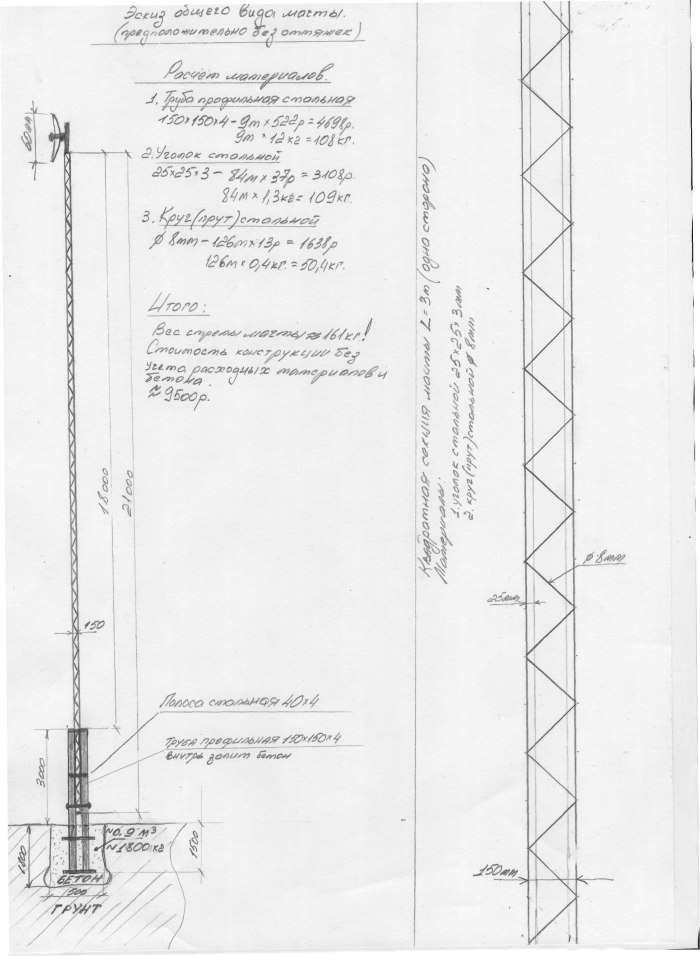 Эскиз общего вида мачты.
(предположительно без оттяжек)
Расчёт материалов.
1. Труба профильная стальная
150х150х4 – 9m × 522р = 4698р.
9m × 12кг = 108кг.
2. Уголок стальной
25×25×3 – 84m × 37р = 3108р.
84m × 1,3кг = 109кг.
3. Круг(прут)стальной
ф 8mm – 126m × 13р = 1638р
126m × 0,4кг. = 50,4кг.
Итого:
Вес стрелы мачты ≈ 161кг!
Стоимость конструкции без
учёта расходных материалов и
бетона.
≈ 9500р.
18000
21000
150
Полоса стальная 40×4
Труба профильная 150х150×4
внутрь залит бетон
3000
1500
~0.9 м³
~1800кг
БЕТОН
500
ГРУНТ
Квадратная секция мачты L = 3m (одна сторона)
Материалы:
1. уголок стальной 25×25×3mm
2. круг(прут)стальной ф 8mm
ф 8mm
25mm
150mm